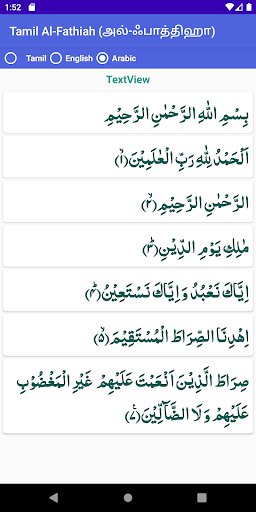 1:52
Tamil Al-Fathiah (அல்-ஃபாத்திஹா)
Tamil English Arabic
TextView
بِسْمِ اللهِ الرَّحْمٰنِ الرَّحِيْمِ
اَلْحَمْدُ لِلّٰهِ رَبِّ الْعٰلَمِيْنَۙ‏﴿۱﴾
الرَّحْمٰنِ الرَّحِيْمِۙ‏﴿۲﴾
مٰلِكِ يَوْمِ الدِّيْنِؕ‏﴿۳﴾
اِيَّاكَ نَعْبُدُ وَاِيَّاكَ نَسْتَعِيْنُؕ‏﴿۴﴾
اِهْدِنَا الصِّرَاطَ الْمُسْتَقِيْمَۙ‏﴿۵﴾
صِرَاطَ الَّذِيْنَ اَنْعَمْتَ عَلَيْهِمْ غَيْرِ الْمَغْضُوْبِ
عَلَيْهِمْ وَلَا الضَّآلِّيْنَ‏﴿۷﴾